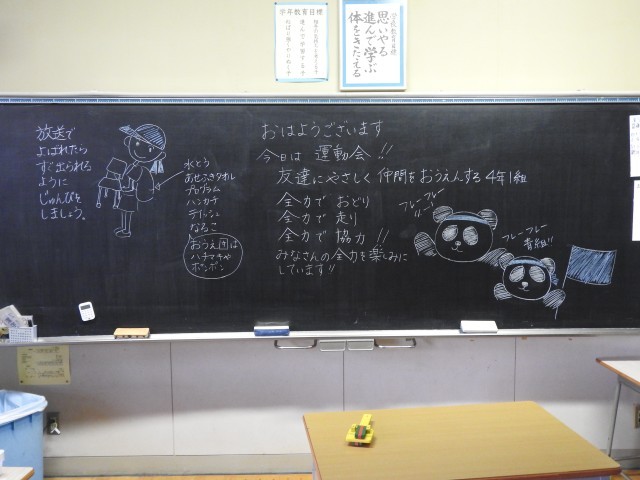 学年教育目標
進んで学習する子
学校教育目標
思いやる
進んで学ぶ
体をきたえる
放送で
よばれたら
すぐ出られる
ように
じゅんびを
しましょう。
水とう
あせふきタオル
プログラム
ハンカチ
ティッシュ
なるこ
おうえ団は
ハチマキや
ポンポン
おはようございます
今日は 運動会!!
友達にやさしく 仲間をおうえんする 4年1組
全力で おどり
全力で 走り
全力で 協力!!
みなさんの全力を楽しみに
しています!!
フレーフレー
フレーフレー
青組!!